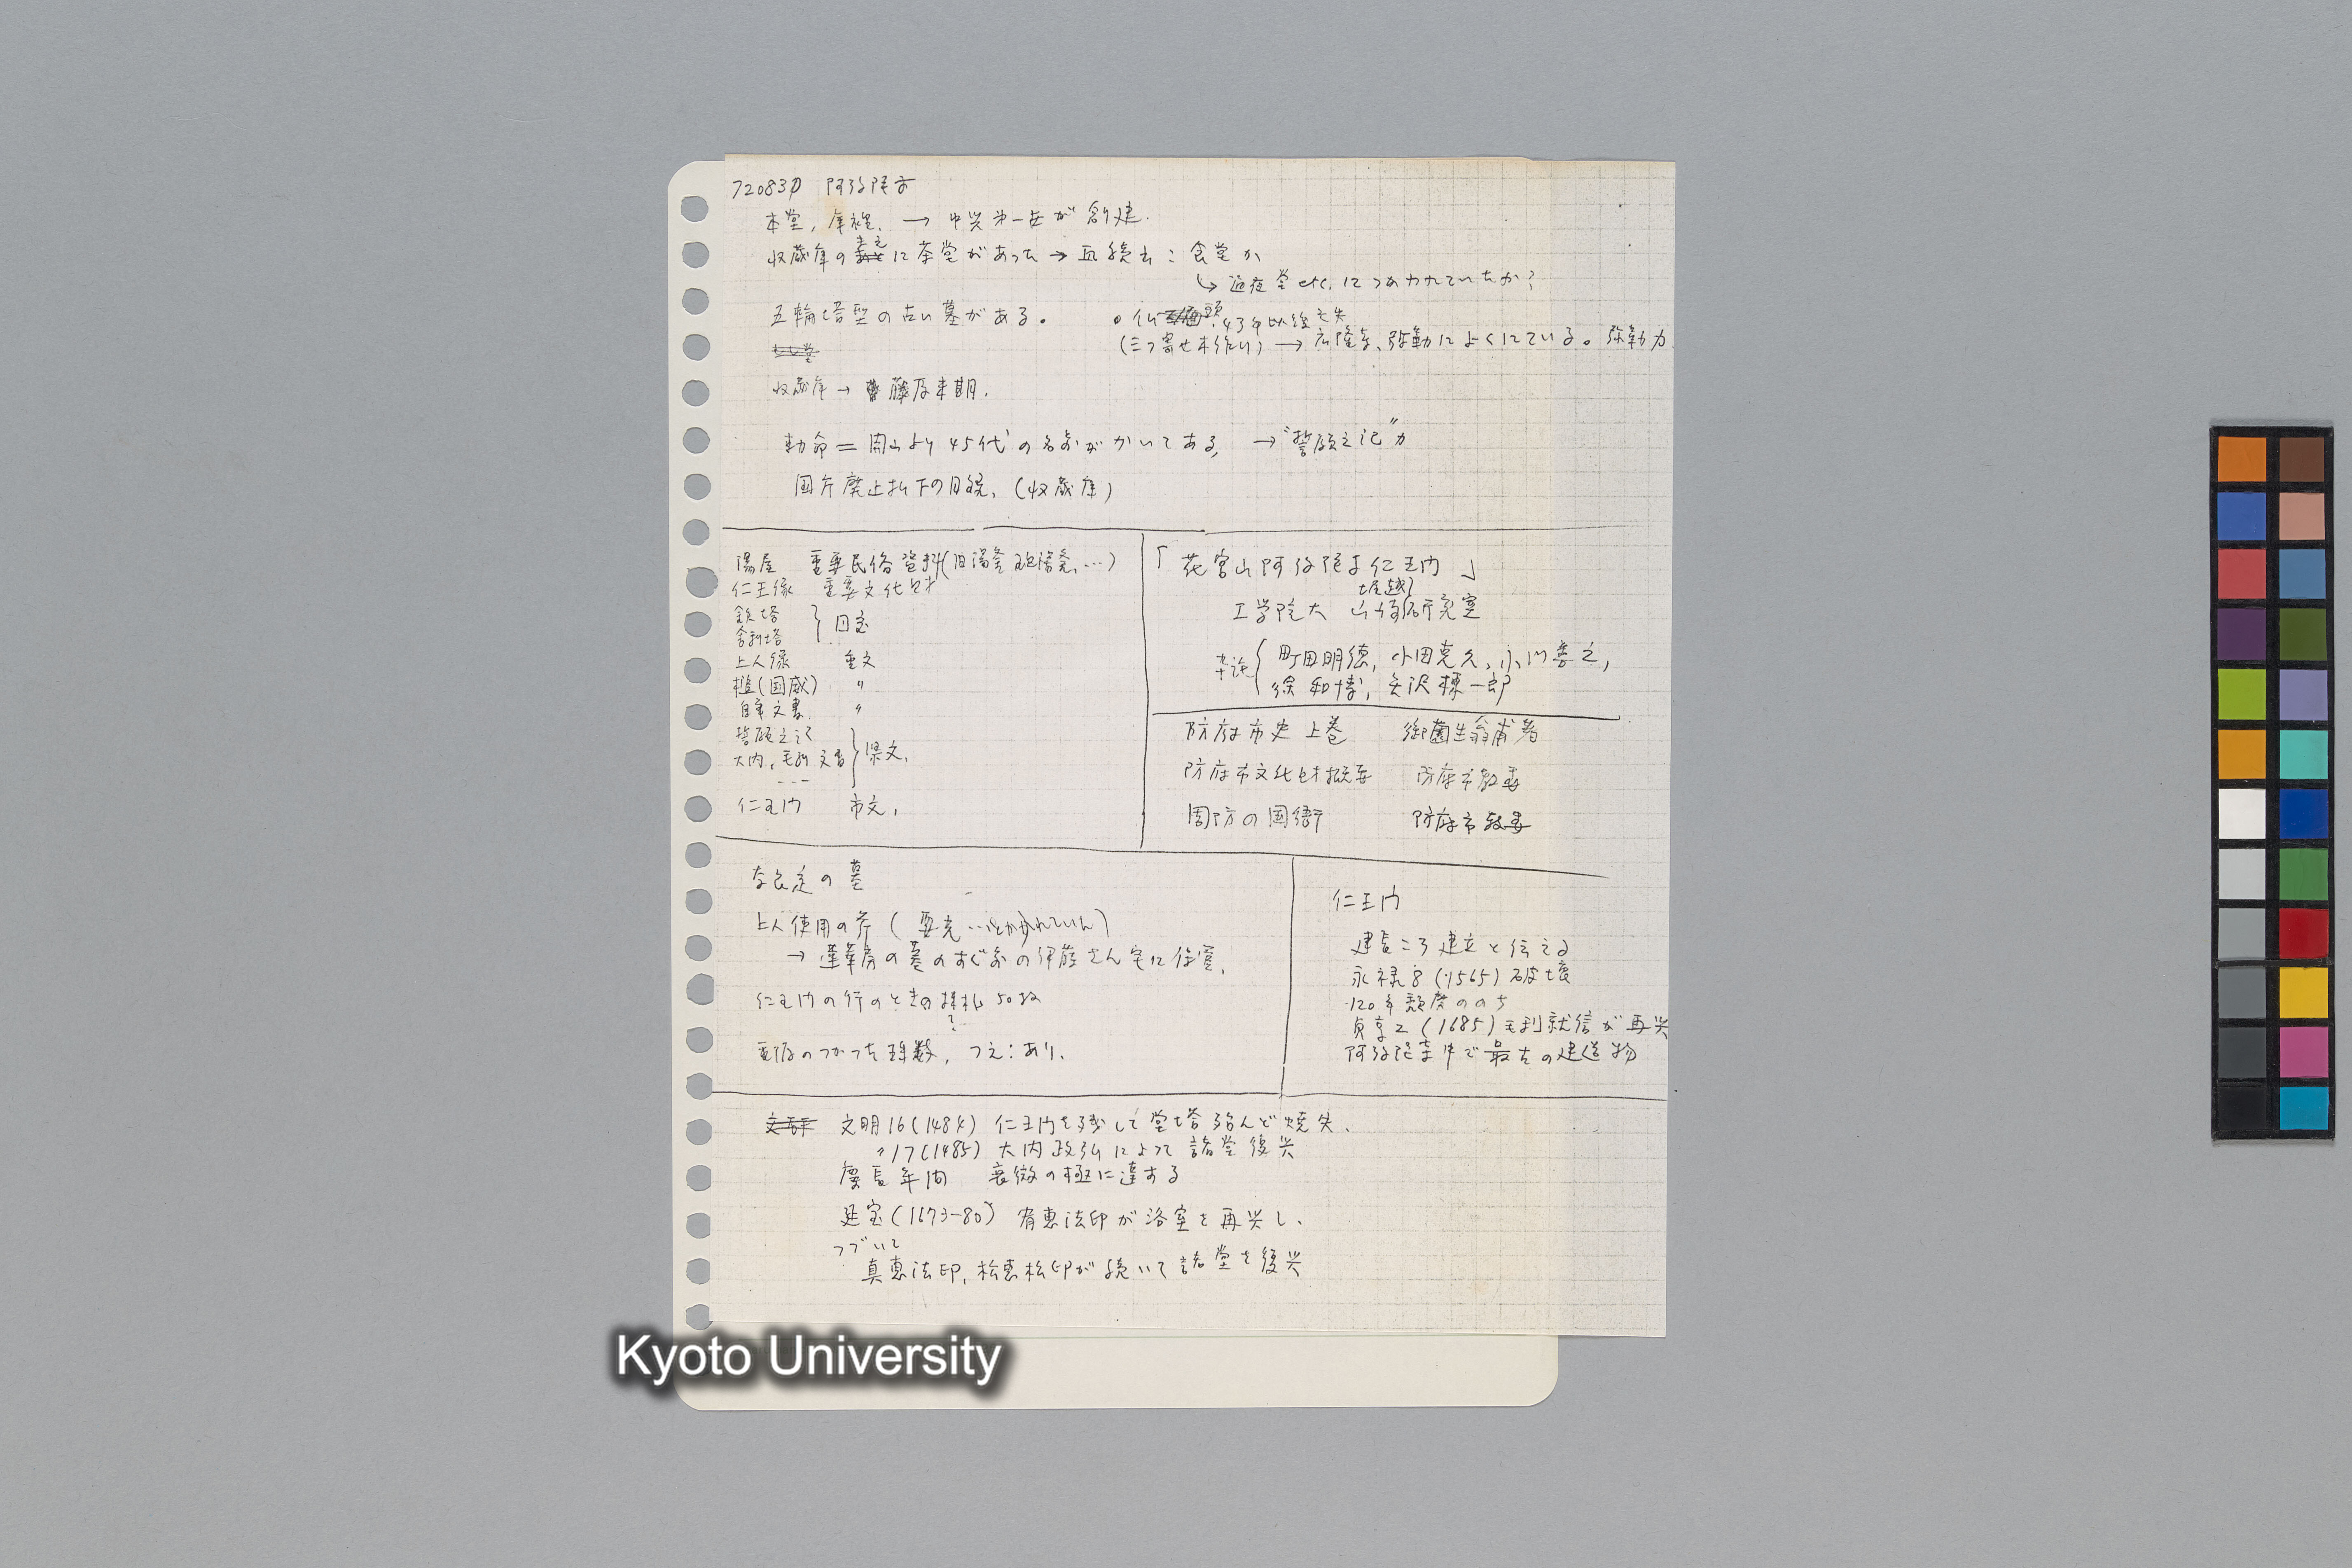 720830 阿弥陀寺
本堂, 庫裡, → 中興第一世が創建.
収蔵庫の に茶堂があった → 且続き: 食堂か
→ 通夜堂 etc. につかわれていたか?
五輪塔型の古い墓がある。
○仏頭. 43年以後亡失
(三つ寄せ木作り) → 広隆寺、弥勒によくにている。弥勒か
収蔵庫 → 藤原末期.
勅命 = 開山より45代の名前がかいてある, → "誓願之記"か
国庁廃止払下の目録, (収蔵庫)
湯屋 重要民俗資料(旧湯釜, …)
仁王像 重要文化財
鉄塔
舎利塔 } 国宝
上人像 重文
槌(国蔵) 〃
自筆文書 〃
誓願之記
大内, 毛利文書 } 県文.
---
仁王門 市文,
「花宮山阿弥陀寺仁王門」
堀越
工学院大 研究室
町田明徳, 小田克久, 小川善之,
徐和博, 矢沢棟一郎
防府市史 上巻 御薗生翁甫著
防府市文化財概要 防府市教委
周防の国衙 防府市教委
奈良定の墓
上人使用の斧 ( …とかかれていた)
→ 蓮華房の墓のすぐ前の伊藤さん宅に保管.
仁王門の行のときの 札 50枚
?
重源のつかった珠数, つえ: あり.
仁王門
建長ころ建立と伝える
永禄8 (1565) 破壊
120年頽廃ののち
貞享2 (1685) 毛利就信が再興
阿弥陀寺中で最古の建造物
文明16(1484) 仁王門を残して堂塔殆んど焼失.
〃17(1485) 大内政弘によって諸堂復興
慶長年間 衰微の極に達する
延宝(1673-80) 有恵法印が浴室を再興し、
つづいて
真恵法印, 松恵松印が続いて諸堂を復興
Kyoto University